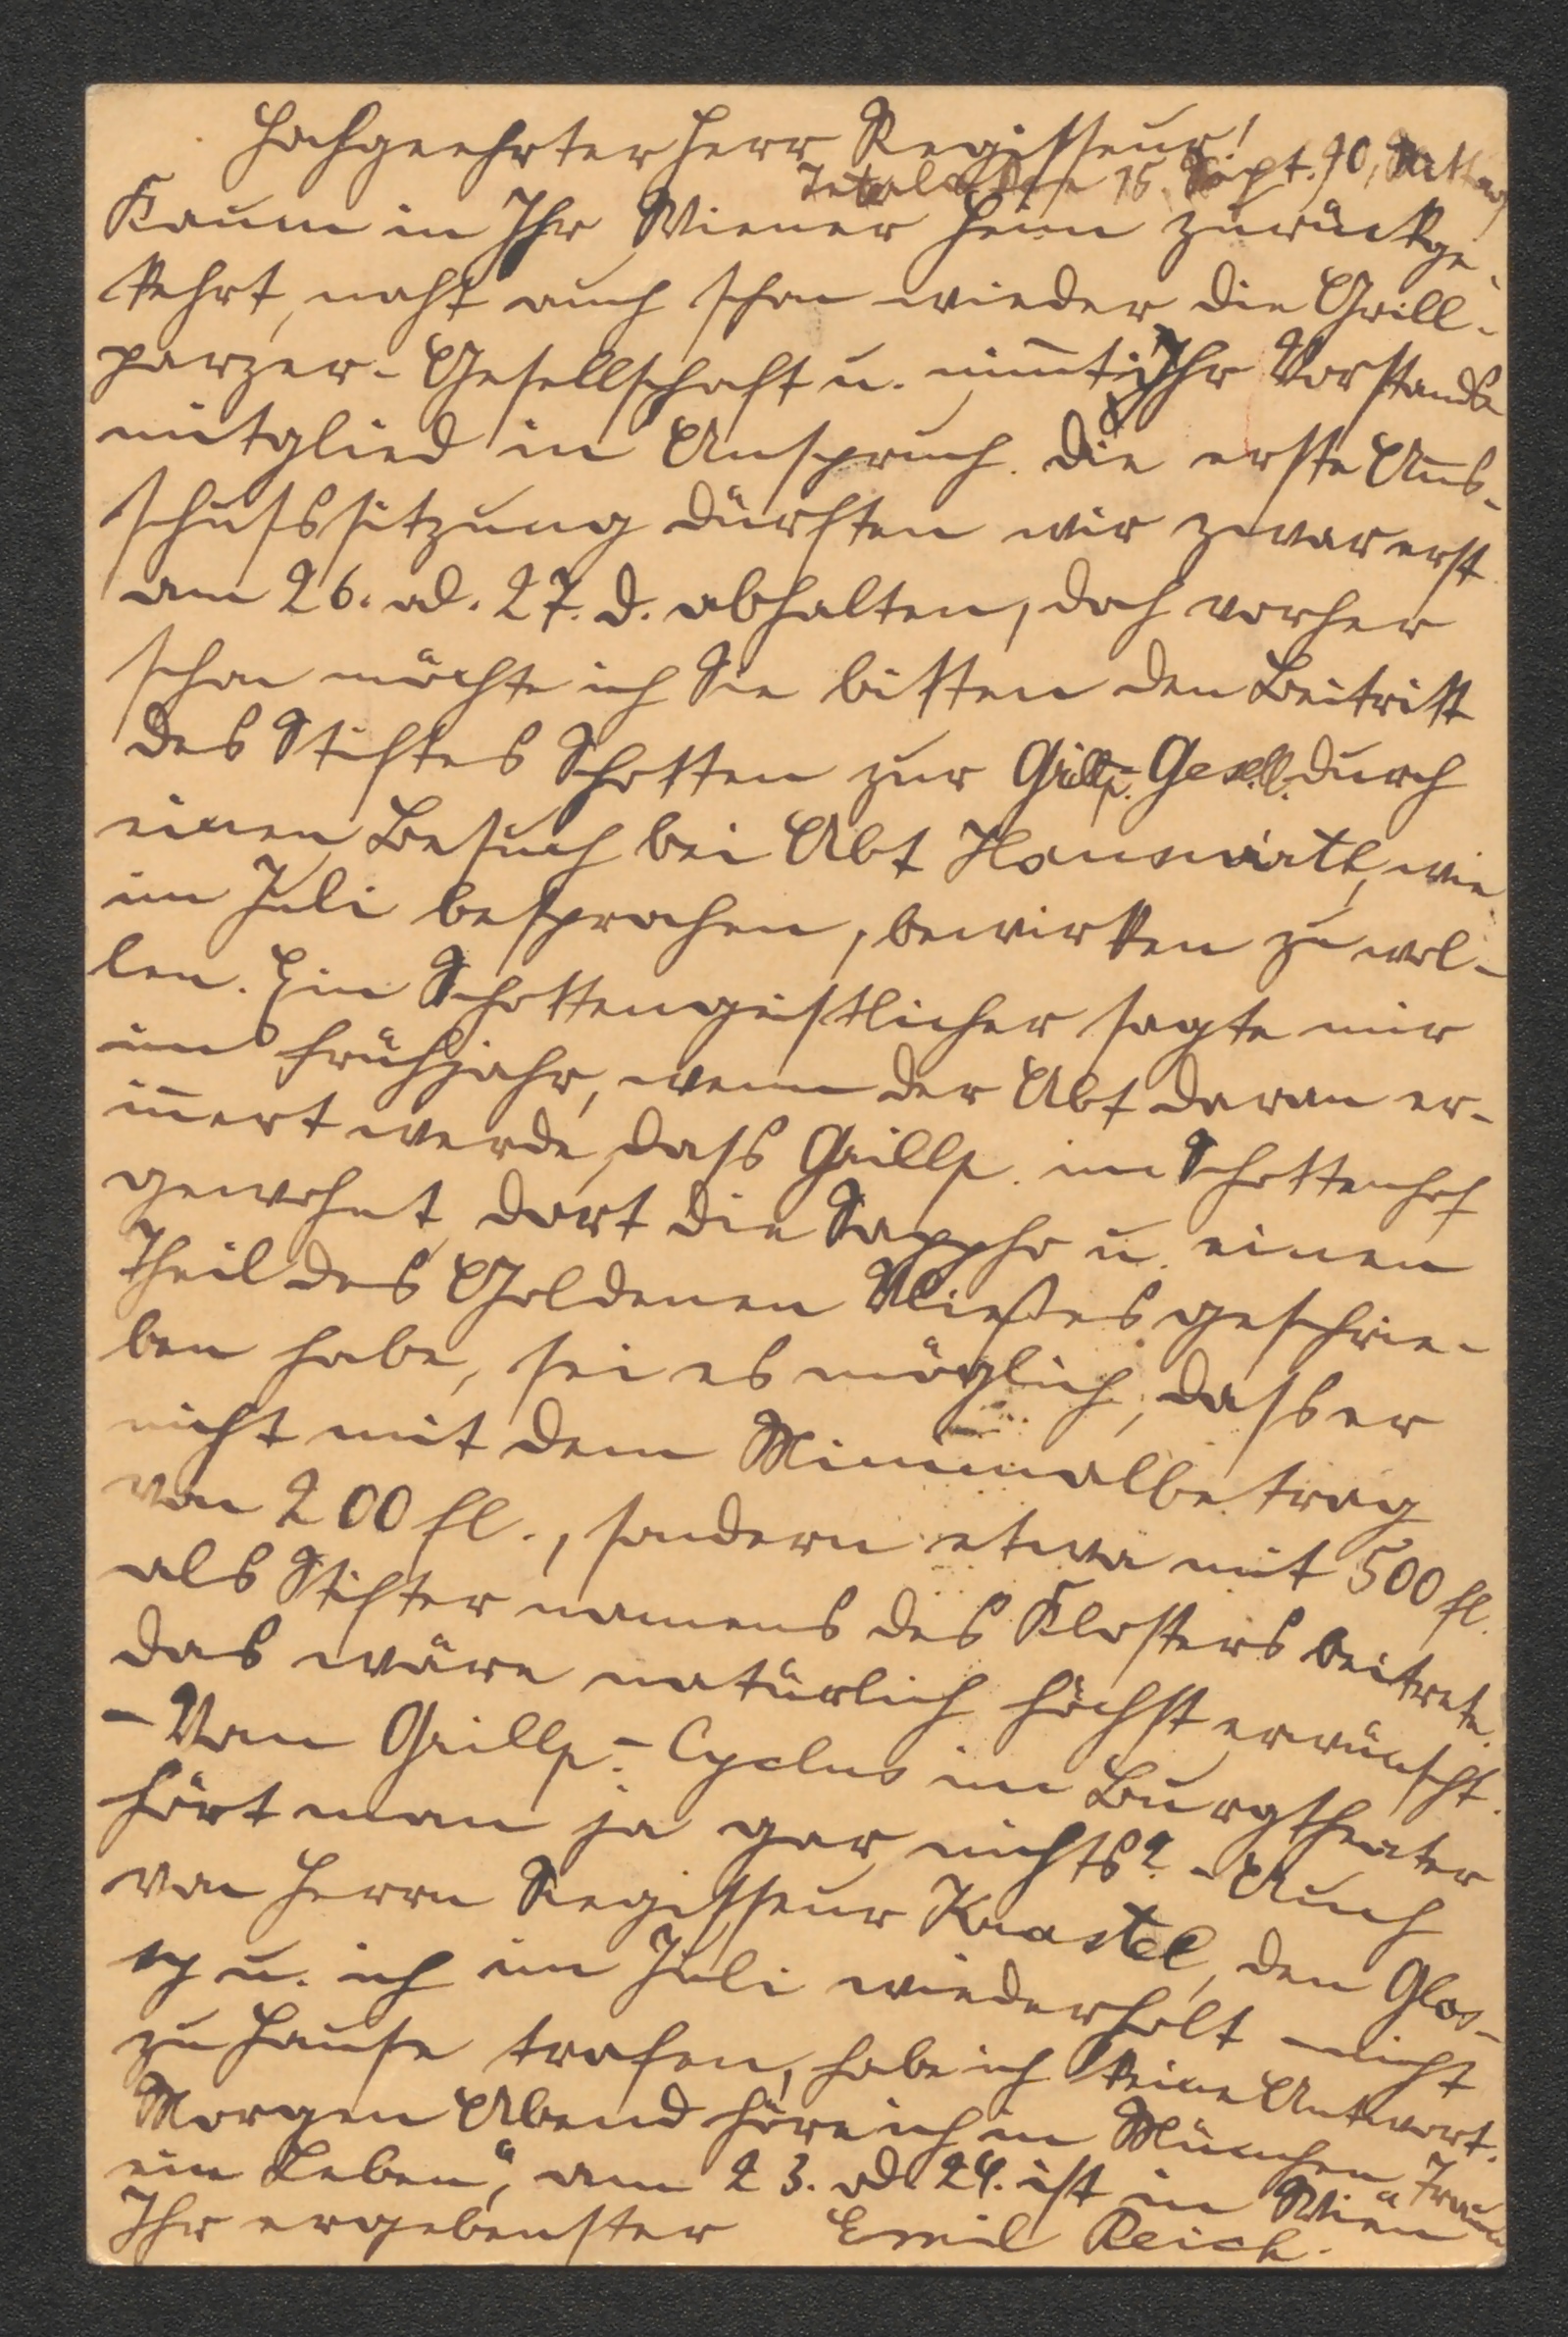 Hochgeehrter Herr Regisseur!
15. Sept. 90, Mittag
Kaum in Ihr Wiener Heim zurückge-
kehrt, naht auch schon wieder die Grill-
parzer-Gesellschaft u. nim̄t Ihr Vorstands-
mitglied in Anspruch. Die erste Aus-
schufssitzung dürften wir zwar erst
am 26. od. 27. d. abhalten, doch vorher
schon möchte ich Sie bitten den Beitritt
des Stiftes Schotten zur Grillp.-Gesell. durch
einen Besuch bei Abt Hauswirth, wie
im Juli besprochen, bewirken zu wol-
len. Ein Schottengeistlicher sagte mir
im Frühjahr, wenn der Abt daran er-
in̄ert werde, dafs Grillp. im Schottenhof
gewohnt, dort die Sappho u. einen
Theil des Goldenen Vließes geschrie-
ben habe, sei es möglich, dafs er
nicht mit dem Minimalbetrag
von 200 fl., sondern etwa mit 500 fl.
als Stifter namens des Klosters beitrete.
Das wäre natürlich höchst erwünscht.
– Vom Grillp.-Cyclus im Burgtheater
hört man ja gar nichts? – Auch
von Herrn Regisseur Krastel, den Glos-
sy u. ich im Juli wiederholt nicht
zu Hause trafen, habe ich keine Antwort.
Morgen Abend höre ich in München „Traum
ein Leben“, am 23. od. 24. ist in Wien
Ihr ergebenster Emil Reich.